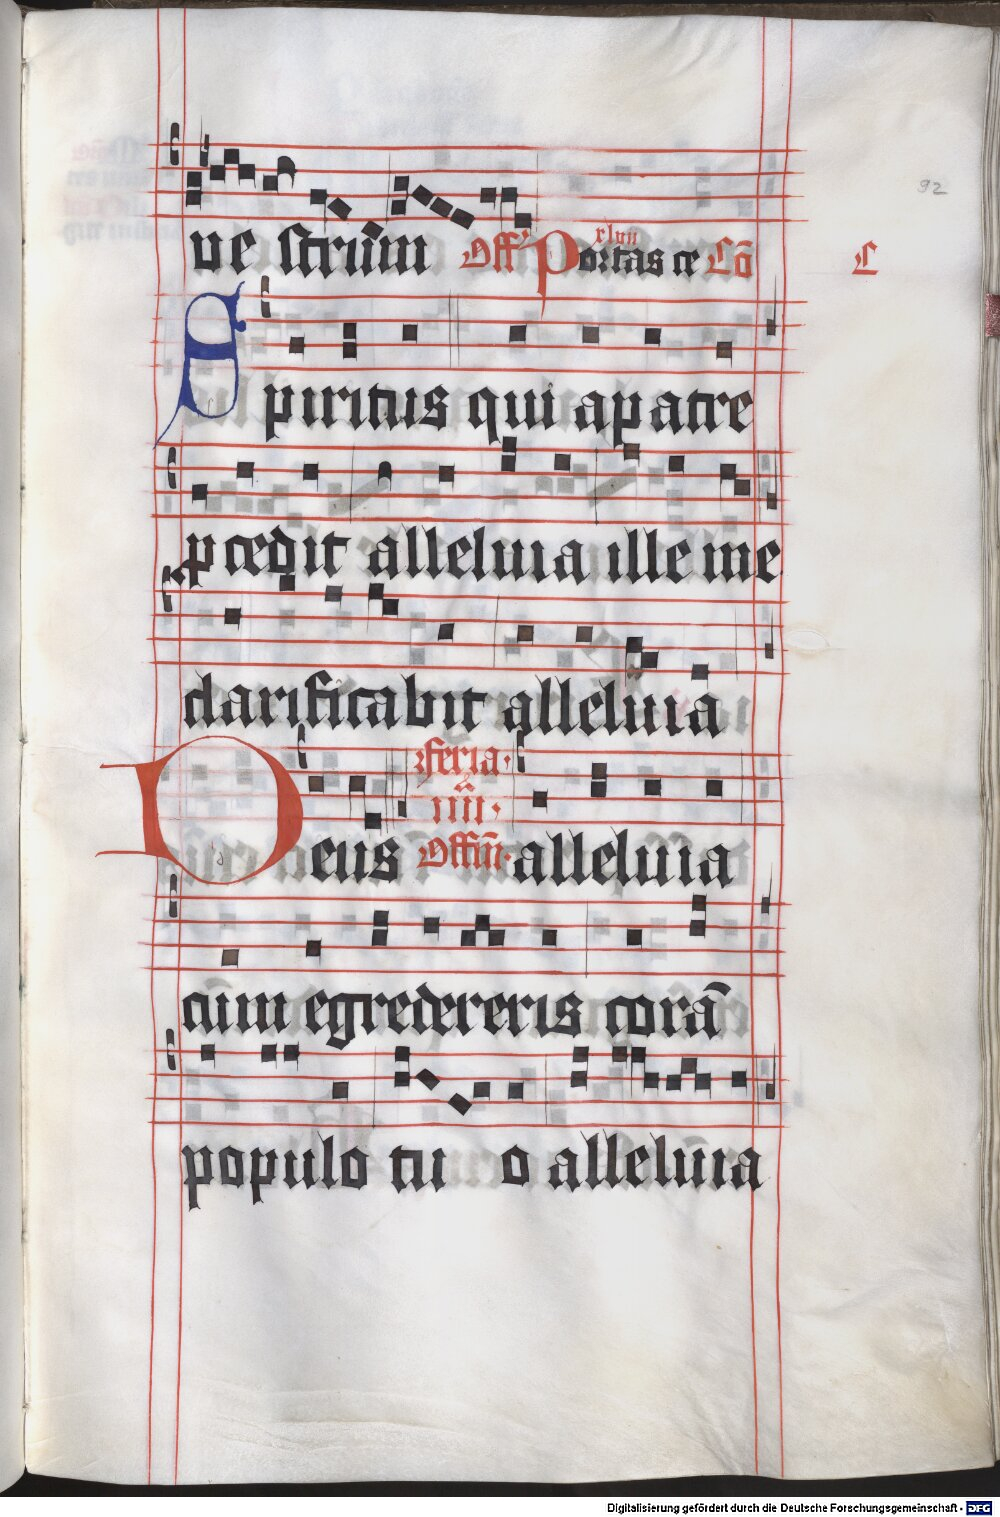 92
ue strum Off' Portas ce Cō C
xlvii
Spiritus qui a patre
pcedit alleluia ille me
clarificabit alleluia
Deus feria iiii Offm alleluia
cum egredereris corā
populo tu o alleluia
Digitalisierung gefördert durch die Deutsche Forschungsgemeinschaft - DFG